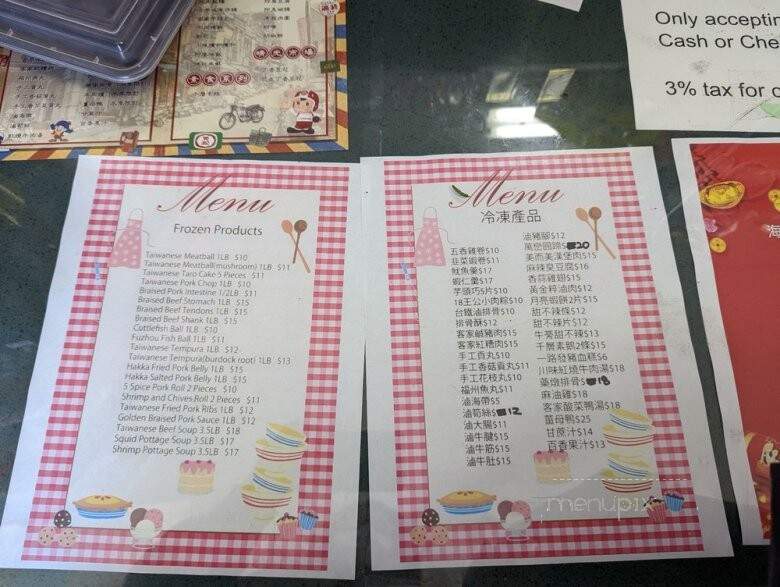 Only accepting
Cash or Che
3% tax for c
素食系列
Menu
Frozen Products
Taiwanese Meatball 1LB $10
Taiwanese Meatball(mushroom) 1LB $11
Taiwanese Taro Cake 5 Pieces $11
Taiwanese Pork Chop 1LB $10
Braised Pork Intestine 1/2LB $11
Braised Beef Stomach 1LB $15
Braised Beef Tendons 1LB $15
Braised Beef Shank 1LB $15
Cuttlefish Ball 1LB $10
Fuzhou Fish Ball 1LB $11
Taiwanese Tempura 1LB $12
Taiwanese Tempura(burdock root) 1LB $13
Hakka Fried Pork Belly 1LB $15
Hakka Salted Pork Belly 1LB $15
5 Spice Pork Roll 2 Pieces $10
Shrimp and Chives Roll 2 Pieces $11
Taiwanese Fried Pork Ribs 1LB $12
Golden Braised Pork Sauce 1LB $12
Taiwanese Beef Soup 3.5LB $18
Squid Pottage Soup 3.5LB $17
Shrimp Pottage Soup 3.5LB $17
Menu
冷凍產品
五香雞卷$10
韭菜蝦卷$11
魷魚羹$17
蝦仁羹$17
芋頭巧5片$10
18王公小肉粽$10
台鐵滷排骨$10
排骨酥$12
客家鹹豬肉$15
客家紅糟肉$15
手工貢丸$10
手工香菇貢丸$11
手工花枝丸$10
福州魚丸$11
滷海帶$5
滷筍絲$12
滷大腸$11
滷牛腱$15
滷牛筋$15
滷牛肚$15
滷豬腳$12
萬巒圓蹄$20
美而美漢堡肉$15
麻辣臭豆腐$16
香蒜雞翅$15
黃金粹滷肉$12
月亮蝦餅2片$15
甜不辣條$12
甜不辣片$12
牛蒡甜不辣$13
千層素鵝2條$15
一路發豬血糕$6
川味紅燒牛肉湯$18
藥燉排骨$18
麻油雞$18
客家酸菜鴨湯$18
薑母鴨$25
甘蔗汁$14
百香果汁$13
海
menupix